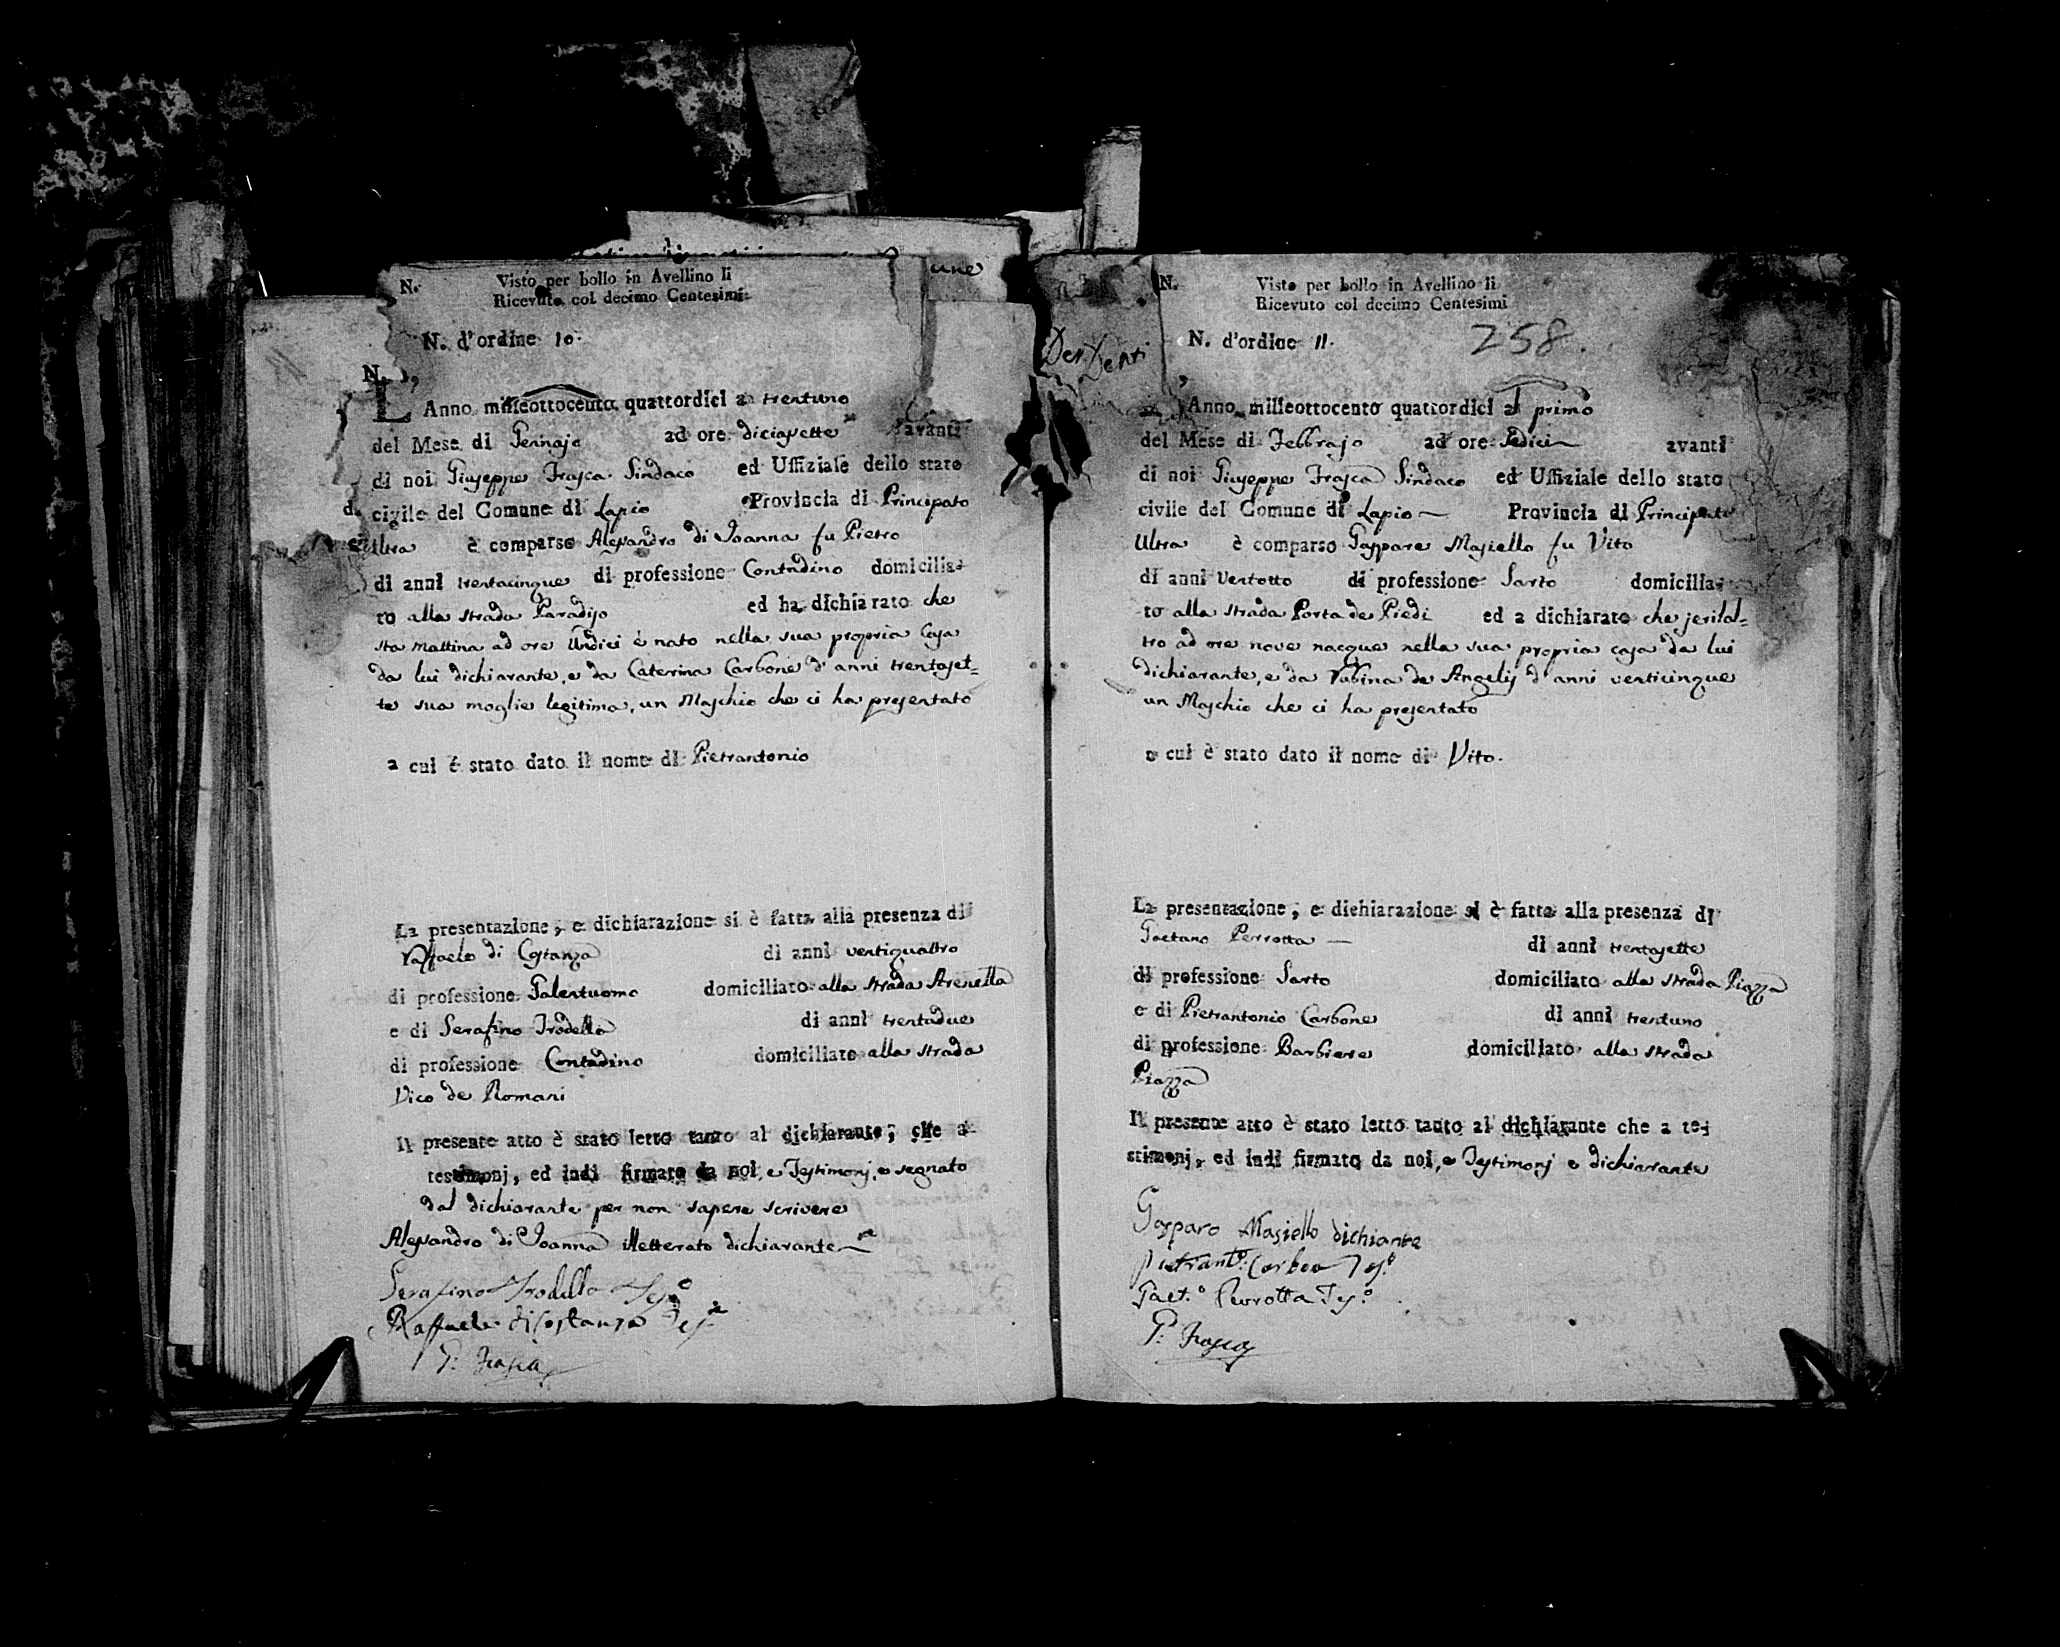 une
N.
Visto per bollo in Avellino li
Ricevuto col decimo Centesimi
N. d'ordine 10.
N.
L'Anno milleottocento quattordici a trentuno
del Mese di Gennajo ad ore diciasette avanti
di noi Giuseppe Frasca Sindaco ed Uffiziale dello stato
civile del Comune di Lapio Provincia di Principato
Ultra è comparso Alessandro di Joanna fu Pietro
di anni trentacinque di professione Contadino domicilia-
to alla strada Paradiso ed ha dichiarato che
sta mattina ad ore Undici è nato nella sua propria Casa
da lui dichiarante, e da Caterina Carbone d'anni trentaset=
te sua moglie legitima, un Maschio che ci ha presentato
a cui è stato dato il nome di Pietrantonio
La presentazione, e dichiarazione si è fatta alla presenza di
Raffaele di Costanza di anni ventiquattro
di professione Galentuomo domiciliato alla strada Arenella
e di Serafino Trodella di anni trentadue
di professione Contadino domiciliato alla strada
Vico de Romani
Il presente atto è stato letto tanto al dichiarante, che a
testimonj, ed indi firmato da noi, e Testimonj, e segnato
dal dichiarante per non sapere scrivere
Alessandro di Joanna illetterato dichiarante
Serafino Trodella Tes.o
Raffaele di Costanza Tes.e
G: Frasca
N.
Visto per bollo in Avellino li
Ricevuto col decimo Centesimi
N. d'ordine 11.
258.
L'Anno milleottocento quattordici al primo
del Mese di Febbrajo ad ore sedici avanti
di noi Giuseppe Frasca Sindaco ed Uffiziale dello stato
civile del Comune di Lapio Provincia di Principato
Ultra è comparso Gaspare Masiello fu Vito
di anni ventotto di professione Sarto domicilia-
to alla strada Porta de Piedi ed a dichiarato che jerilal=
tro ad ore nove nacque nella sua propria casa da lui
dichiarante, e da Rubina de Angelis d'anni venticinque
un Maschio che ci ha presentato
a cui è stato dato il nome di Vito.
La presentazione, e dichiarazione si è fatta alla presenza di
Gaetano Perrotta di anni trentasette
di professione Sarto domiciliato alla strada Piazza
e di Pietrantonio Carbone di anni trentuno
di professione Barbiere domiciliato alla strada
Piazza
Il presente atto è stato letto tanto al dichiarante che a te-
stimonj, ed indi firmato da noi, e Testimonj e dichiarante
Gasparo Masiello dichiante
Pietrant.o: Carbone Tes.o
Gaet.o Perrotta Tes.o
G: Frasca